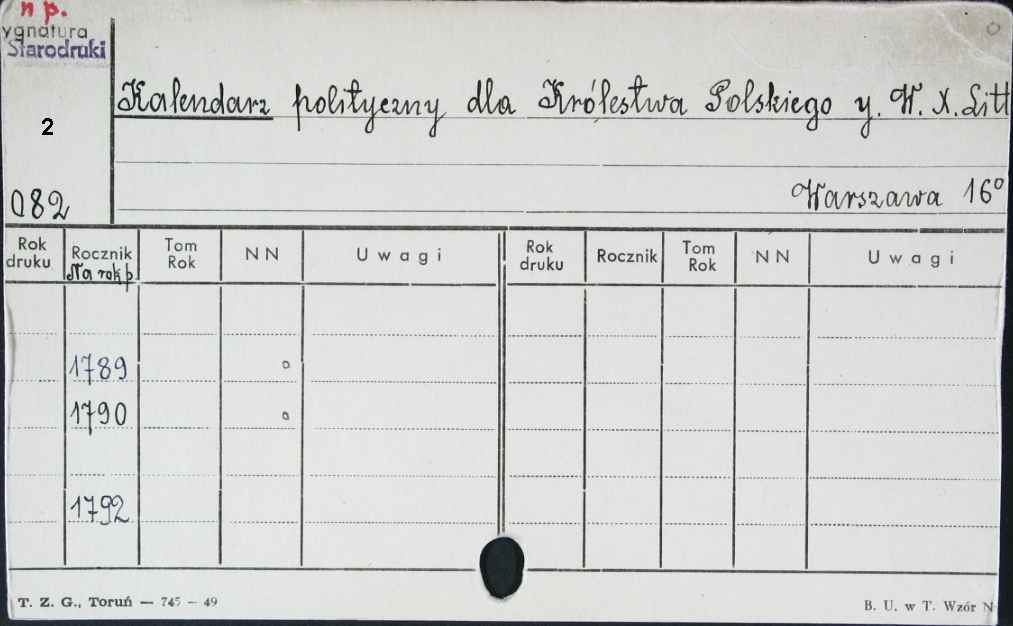 n p.
ygnatura
Starodruki
Kalendarz polityczny dla Królestwa Polskiego y. W. X. Litt
2
Warszawa 16º
082
Rok druku Rocznik Na rok p. Tom Rok N N Uwagi Rok druku Rocznik Tom Rok N N Uwagi
1789 o
1790 o
1792
T. Z. G., Toruń — 745 – 49 B. U. w T. Wzór N